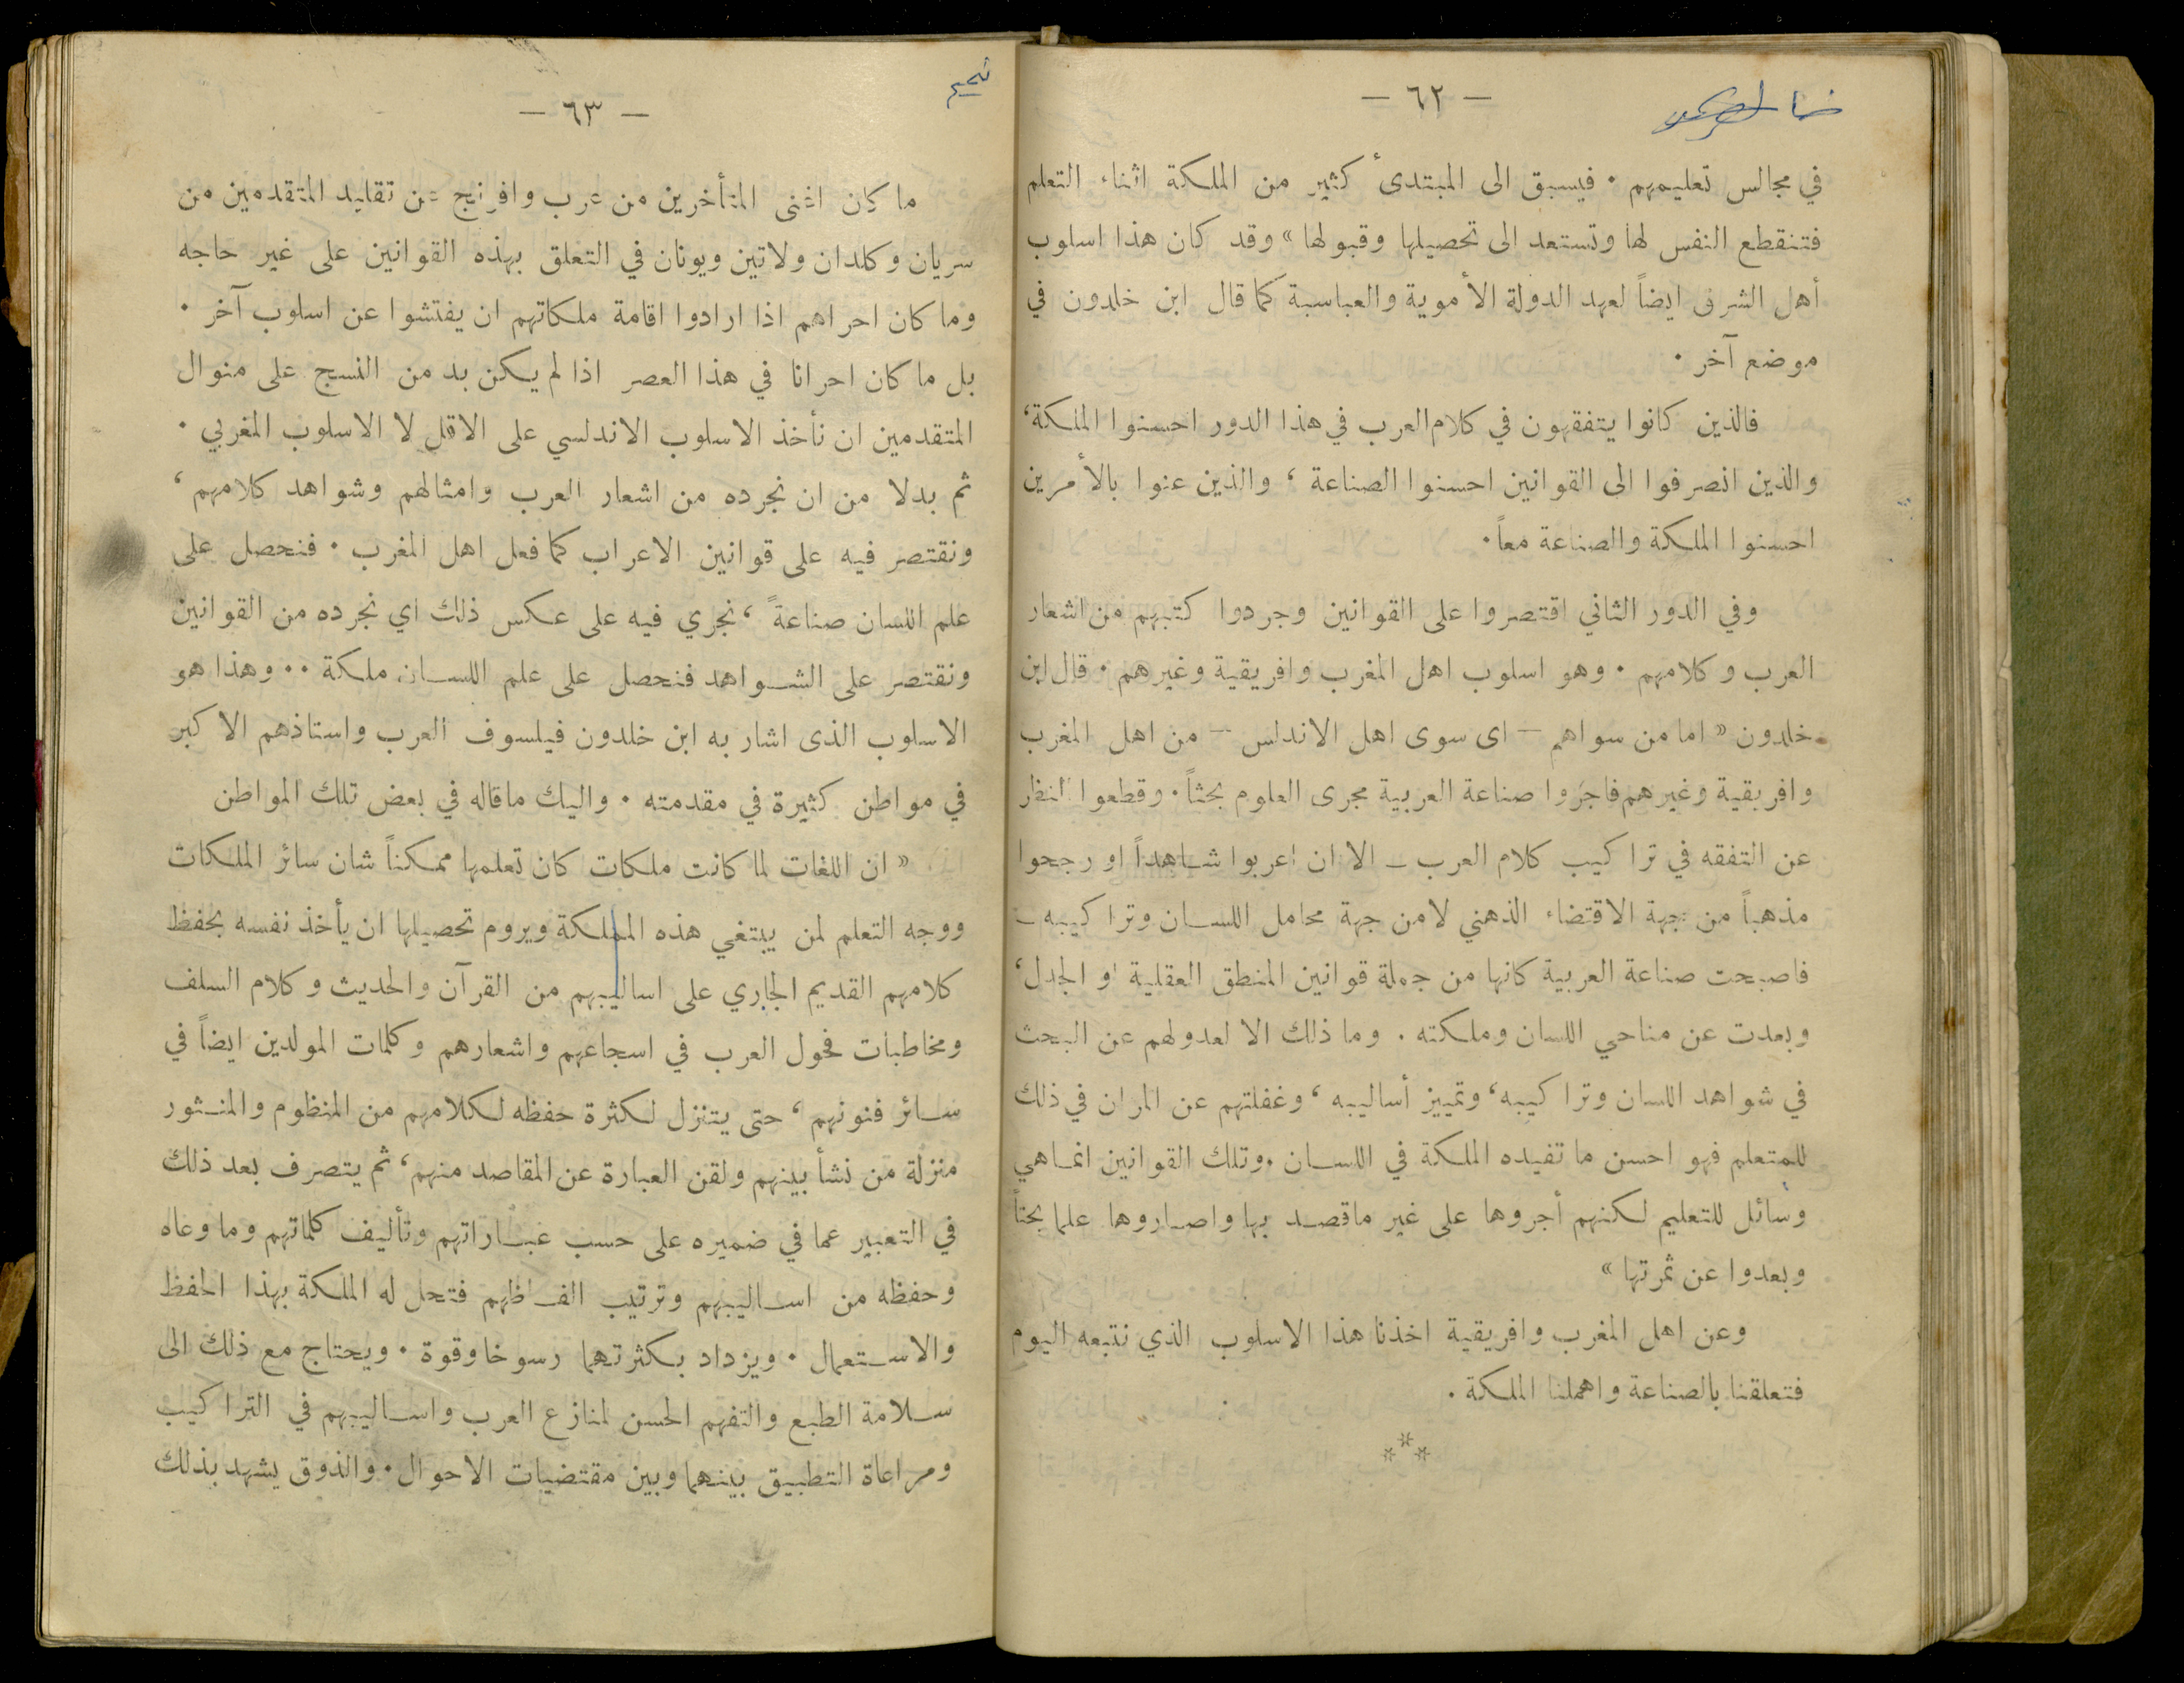 — ٦٢ —
في مجالس تعليمهم . فيسبق الى المبتدئ كثير من الملكة اثناء التعلم
فتنقطع النفس لها وتستعد الى تحصيلها وقبولها » وقد كان هذا اسلوب
أهل الشرق ايضاً لعهد الدولة الأموية والعباسية كما قال ابن خلدون في
موضع آخر .
فالذين كانوا يتفقهون في كلام العرب في هذا الدور احسنوا الملكة ،
والذين انصرفوا الى القوانين احسنوا الصناعة ، والذين عنوا بالأمرين
احسنوا الملكة والصناعة معاً .
وفي الدور الثاني اقتصروا على القوانين وجردوا كتبهم من اشعار
العرب وكلامهم . وهو اسلوب اهل المغرب وافريقية وغيرهم . قال ابن
خلدون « اما من سواهم — اى سوى اهل الاندلس — من اهل المغرب
وافريقية وغيرهم فاجروا صناعة العربية مجرى العلوم بحثاً . وقطعوا النظر
عن التفقه في تراكيب كلام العرب — الا ان اعربوا شاهداً او رجحوا
مذهباً من جهة الاقتضاء الذهني لا من جهة محامل اللسان وتراكيبه —
فاصبحت صناعة العربية كانها من جملة قوانين المنطق العقلية او الجدل ،
وبعدت عن مناحي اللسان وملكته . وما ذلك الا لعدولهم عن البحث
في شواهد اللسان وتراكيبه ، وتمييز أساليبه ، وغفلتهم عن المران في ذلك
للمتعلم فهو احسن ما تفيده الملكة في اللسان . وتلك القوانين انما هي
وسائل للتعليم لكنهم أجروها على غير ما قصد بها واصاروها علما بحتاً
وبعدوا عن ثمرتها »
وعن اهل المغرب وافريقية اخذنا هذا الاسلوب الذي نتبعه اليوم
فتعلقنا بالصناعة واهملنا الملكة .
***
— ٦٣ —
ما كان اغنى المتأخرين من عرب وافرنج عن تقليد المتقدمين من
سريان وكلدان ولاتين ويونان في التعلق بهذه القوانين على غير حاجه
وما كان احراهم اذا ارادوا اقامة ملكاتهم ان يفتشوا عن اسلوب آخر .
بل ما كان احرانا في هذا العصر اذا لم يكن بد من النسج على منوال
المتقدمين ان نأخذ الاسلوب الاندلسي على الاقل لا الاسلوب المغربي .
ثم بدلا من ان نجرده من اشعار العرب وامثالهم وشواهد كلامهم ،
ونقتصر فيه على قوانين الاعراب كما فعل اهل المغرب . فنحصل على
علم اللسان صناعةً ، نجري فيه على عكس ذلك اي نجرده من القوانين
ونقتصر على الشواهد فنحصل على علم اللسان ملكة . . وهذا هو
الاسلوب الذى اشار به ابن خلدون فيلسوف العرب واستاذهم الاكبر
في مواطن كثيرة في مقدمته . واليك ما قاله في بعض تلك المواطن
« ان اللغات لما كانت ملكات كان تعلمها ممكناً شان سائر الملكات
ووجه التعلم لمن يبتغي هذه المملكة ويروم تحصيلها ان يأخذ نفسه بحفظ
كلامهم القديم الجاري على اساليبهم من القرآن والحديث وكلام السلف
ومخاطبات فحول العرب في اسجاعهم واشعارهم وكلمات المولدين ايضاً في
سائر فنونهم ، حتى يتنزل لكثرة حفظه لكلامهم من المنظوم والمنثور
منزلة من نشأ بينهم ولقن العبارة عن المقاصد منهم ، ثم يتصرف بعد ذلك
في التعبير عما في ضميره على حسب عباراتهم وتأليف كلماتهم وما وعاه
وحفظه من اساليبهم وترتيب الفاظهم فتحل له الملكة بهذا الحفظ
والاستعمال . ويزداد بكثرتهما رسوخا وقوة . ويحتاج مع ذلك الى
سلامة الطبع والتفهم الحسن لمنازع العرب واساليبهم في التراكيب
ومراعاة التطبيق بينهما وبين مقتضيات الاحوال . والذوق يشهد بذلك